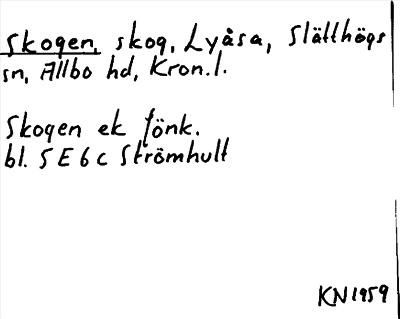 Skogen, skog, Lyåsa, Slätthögs
sn, Allbo hd, Kron.l.
Skogen ek fönk.
bl. 5 E 6 c Strömhult
KN 1959